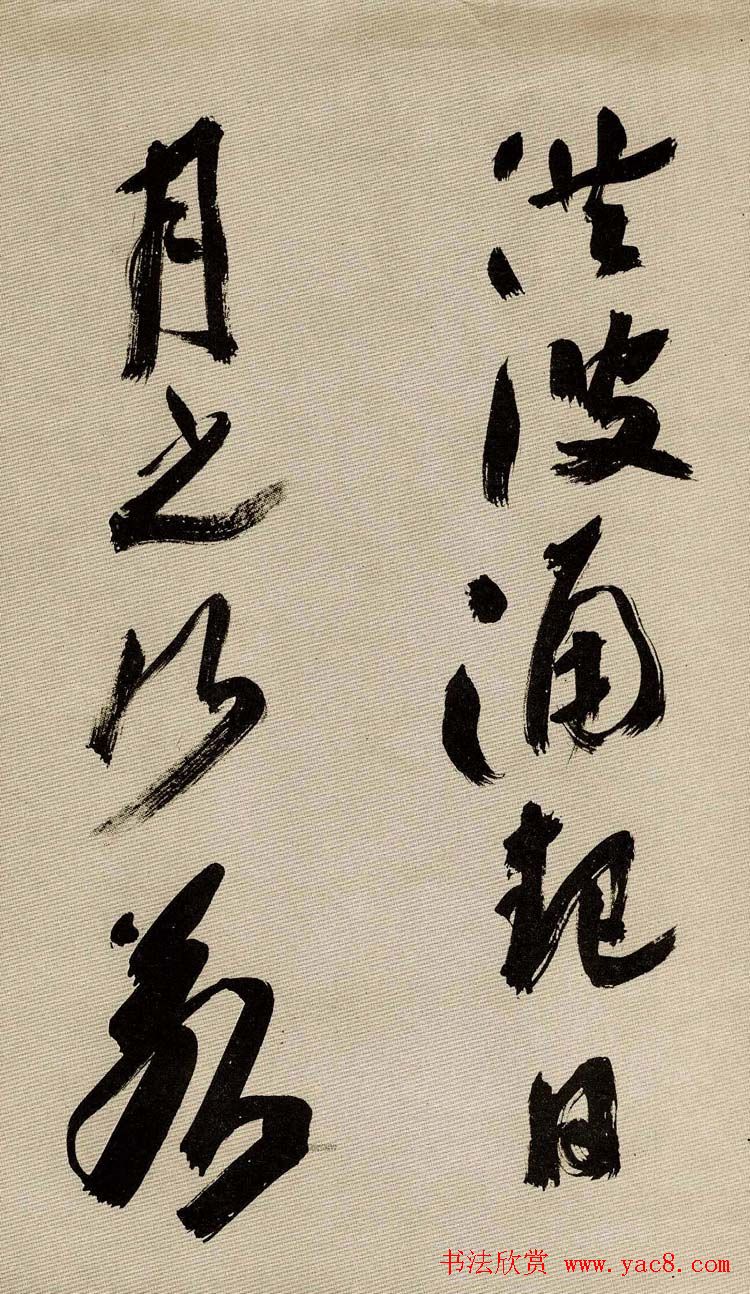 洪波涌起日
月之行若
书法欣赏 www.yac8.com